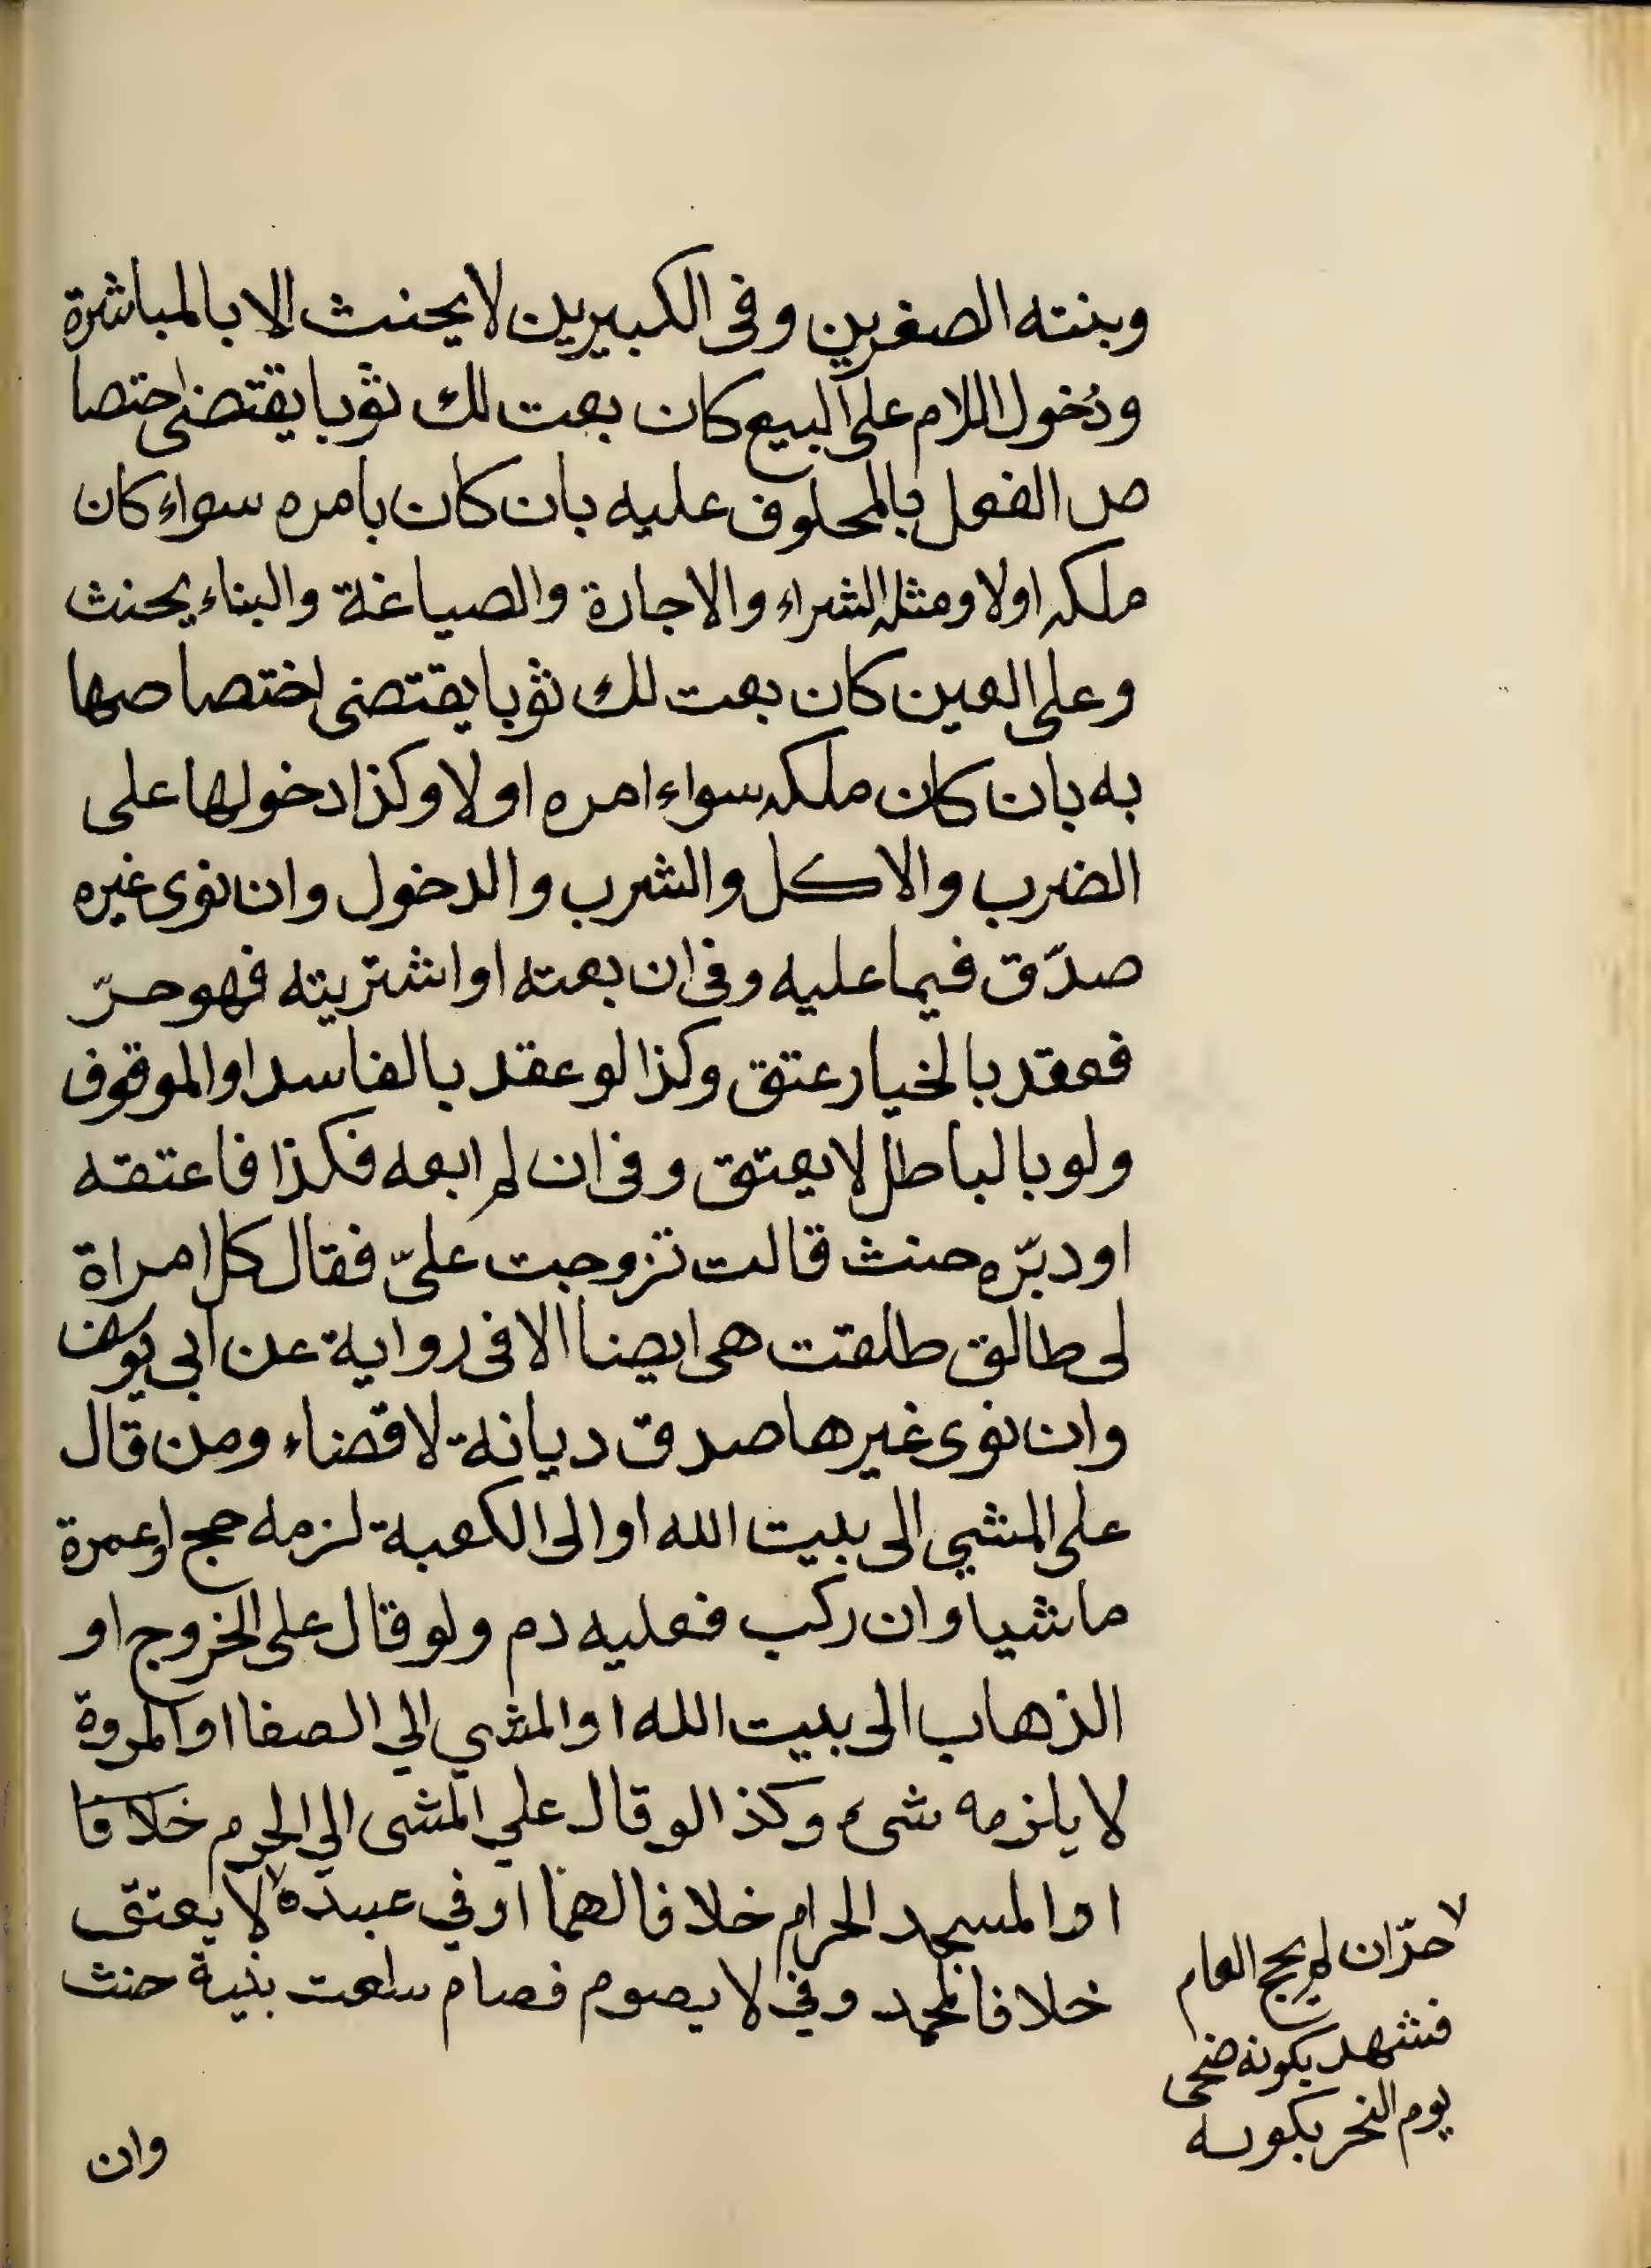 وبنته الصغرين وفى الكبيرين لا يحنث الا بالمباشرة
ودخول اللام على البيع كان بعت لك ثوبا يقتضى اختصا
ص الفعل بالمحلوف عليه بان كان بامره سواء كان
ملكه اولا ومثله الشراء والاجارة والصياغة والبناء يحنث
وعلى العين كان بعت لك ثوبا يقتضى اختصاصها
به بان كان ملكه سواء امره اولا وكذا دخولها على
الضرب والاكل والشرب والدخول وان نوى غيره
صدّق فيما عليه وفى ان بعته او اشتريته فهو حرّ
فعقد بالخيار عتق وكذا لو عقد بالفاسد او الموقوف
ولو بالباطل لا يعتق وفى ان لم ابعه فكذا فاعتقه
او دبّره حنث قالت تزوجت علىّ فقال كل امراة
لى طالق طلقت هى ايضا الا فى رواية عن ابى يوسف
وان نوى غيرها صدق ديانة لا قضاء ومن قال
على المشى الى بيت الله او الى الكعبة لزمه حج او عمرة
ماشيا وان ركب فعليه دم ولو قال على الخروج او
الذهاب الى بيت الله او المشي الي الصفا او المروة
لا يلزمه شىء وكذا لو قال علي المشى الي الحرم خلافا
او المسجد الحرام خلافا لهما او في عبده لا يعتق
خلافا لمحمد وفي لا يصوم فصام ساعت بنية حنث
حرّ ان لم يحج العام
فشهد بكونه ضحى
يوم النحر بكوفه
وان